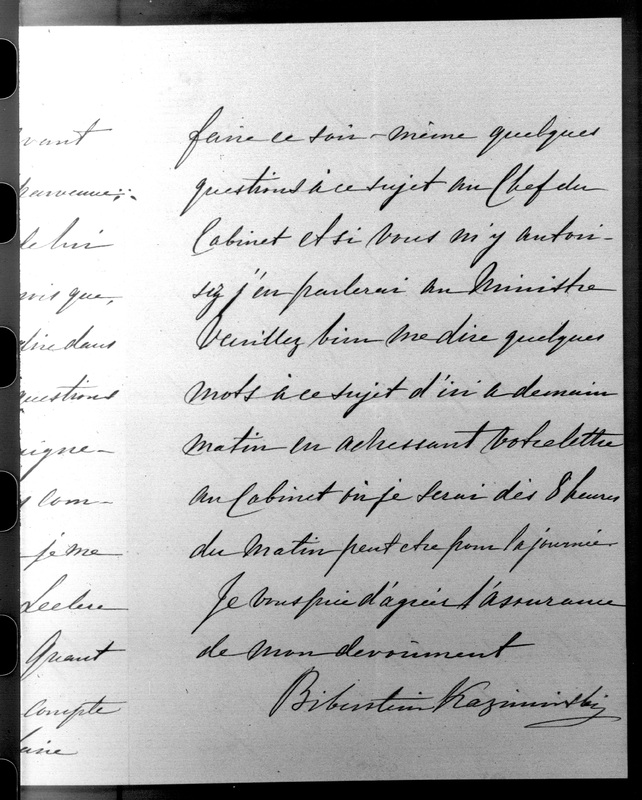 vant
parvenue;
de lui
mis que,
dire dans
questions
signe-
com-
je me
Leclerc
Quant
compte
faire
faire ce soir-même quelques
questions à ce sujet au Chef du
Cabinet et si vous m'y autori-
sez j'en parlerai au Ministre
Veuillez bien me dire quelques
mots à ce sujet d'ici a demain
matin en adressant votre lettre
au Cabinet où je serai dès 8 heures
du matin peut etre pour la journée.
Je vous prie d'agréer l'assurance
de mon devoûment
Biberstein Kazimirski